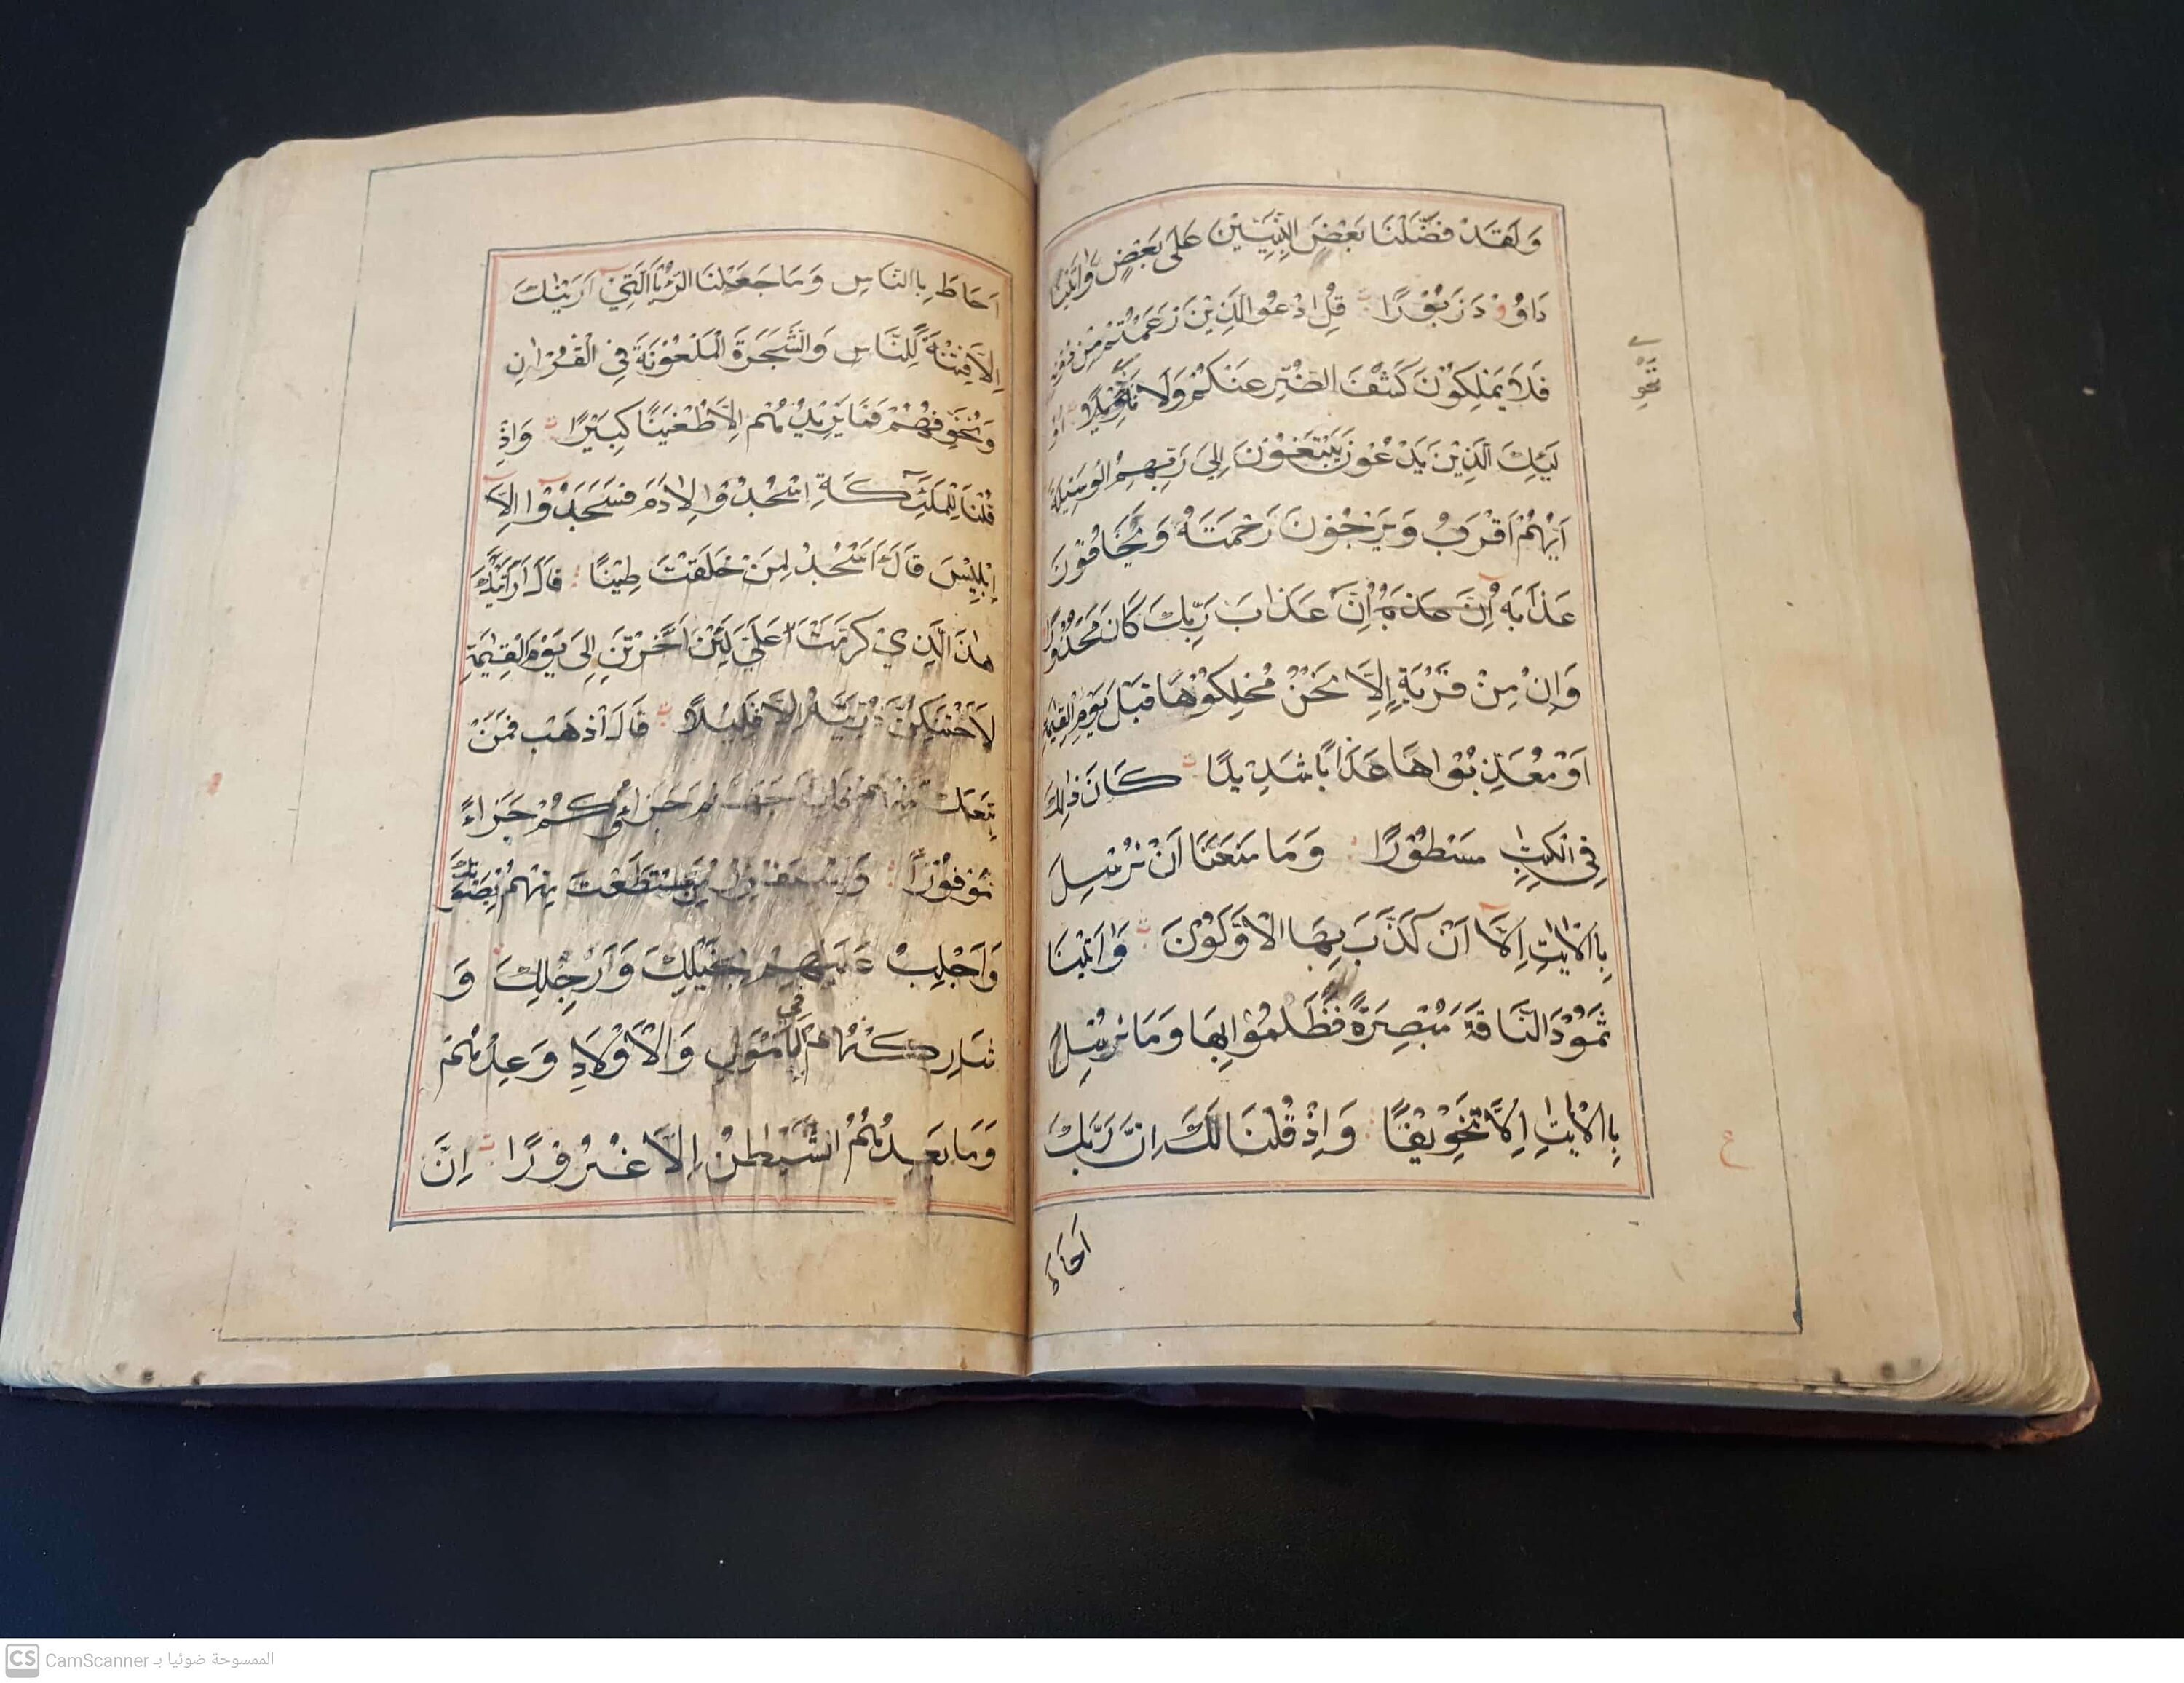 وَلَقَدْ فَضَّلْنَا بَعْضَ النَّبِيّٖنَ عَلٰى بَعْضٍ وَّاٰتَيْنَا
دَاوُوْدَ زَبُوْرًا قُلِ ادْعُوا الَّذِيْنَ زَعَمْتُمْ مِنْ دُوْنِهٖ
فَلَا يَمْلِكُوْنَ كَشْفَ الضُّرِّ عَنْكُمْ وَلَا تَحْوِيْلًا اُو
تَحْوِ
لٰٓئِكَ الَّذِيْنَ يَدْعُوْنَ يَبْتَغُوْنَ اِلٰى رَبِّهِمُ الْوَسِيْلَةَ
اَيُّهُمْ اَقْرَبُ وَيَرْجُوْنَ رَحْمَتَهٗ وَيَخَافُوْنَ
عَذَابَهٗ اِنَّ عَذَابَ رَبِّكَ كَانَ مَحْذُوْرًا
وَاِنْ مِنْ قَرْيَةٍ اِلَّا نَحْنُ مُهْلِكُوْهَا قَبْلَ يَوْمِ الْقِيٰمَةِ
اَوْ مُعَذِّبُوْاهَا عَذَابًا شَدِيْدًا كَانَ ذٰلِكَ
فِي الْكِتٰبِ مَسْطُوْرًا وَمَا مَنَعَنَا اَنْ نُرْسِلَ
بِاالْاٰيٰتِ اِلَّا اَنْ كَذَّبَ بِهَا الْاَوَّلُوْنَ وَاٰتَيْنَا
ثَمُوْدَ النَّاقَةَ مُبْصِرَةً فَظَلَمُوْا بِهَا وَمَا نُرْسِلُ
بِاالْاٰيٰتِ اِلَّا تَخْوِيْفًا وَاِذْ قُلْنَا لَكَ اِنَّ رَبَّكَ
ع
اَحَاطَ
اَحَاطَ بِاالنَّاسِ وَمَا جَعَلْنَا الرُّءْيَا الَّتِيْ اَرَيْنٰكَ
اِلَّا فِتْنَةً لِّلنَّاسِ وَالشَّجَرَةَ الْمَلْعُوْنَةَ فِي الْقُرْاٰنِ
وَنُخَوِّفُهُمْ فَمَا يَزِيْدُهُمْ اِلَّا طُغْيٰنًا كَبِيْرًا وَاِذْ
قُلْنَا لِلْمَلٰٓئِكَةِ اسْجُدُوْا لِاٰدَمَ فَسَجَدُوْا اِلَّا
اِبْلِيْسَ قَالَ ءَاَسْجُدُ لِمَنْ خَلَقْتَ طِيْنًا قَالَ اَرَءَيْتَكَ
هٰذَا الَّذِيْ كَرَّمْتَ عَلَيَّ لَئِنْ اَخَّرْتَنِ اِلٰى يَوْمِ الْقِيٰمَةِ
لَاَحْتَنِكَنَّ ذُرِّيَّتَهٗ اِلَّا قَلِيْلًا قَالَ اذْهَبْ فَمَنْ
تَبِعَكَ مِنْهُمْ فَاِنَّ جَهَنَّمَ جَزَاؤُكُمْ جَزَاءً
مَوْفُوْرًا وَاسْتَفْزِزْ مَنِ اسْتَطَعْتَ مِنْهُمْ بِصَوْتِكَ
وَاَجْلِبْ عَلَيْهِمْ بِخَيْلِكَ وَاَرْجِلِكَ وَ
شَارِكْهُمْ فِي الْاَمْوٰلِ وَالْاَوْلَادِ وَعِدْهُمْ
وَمَا يَعِدُهُمُ الشَّيْطٰنُ اِلَّا غُرُوْرًا اِنَّ
CS CamScanner الممسوحة ضوئيا بـ